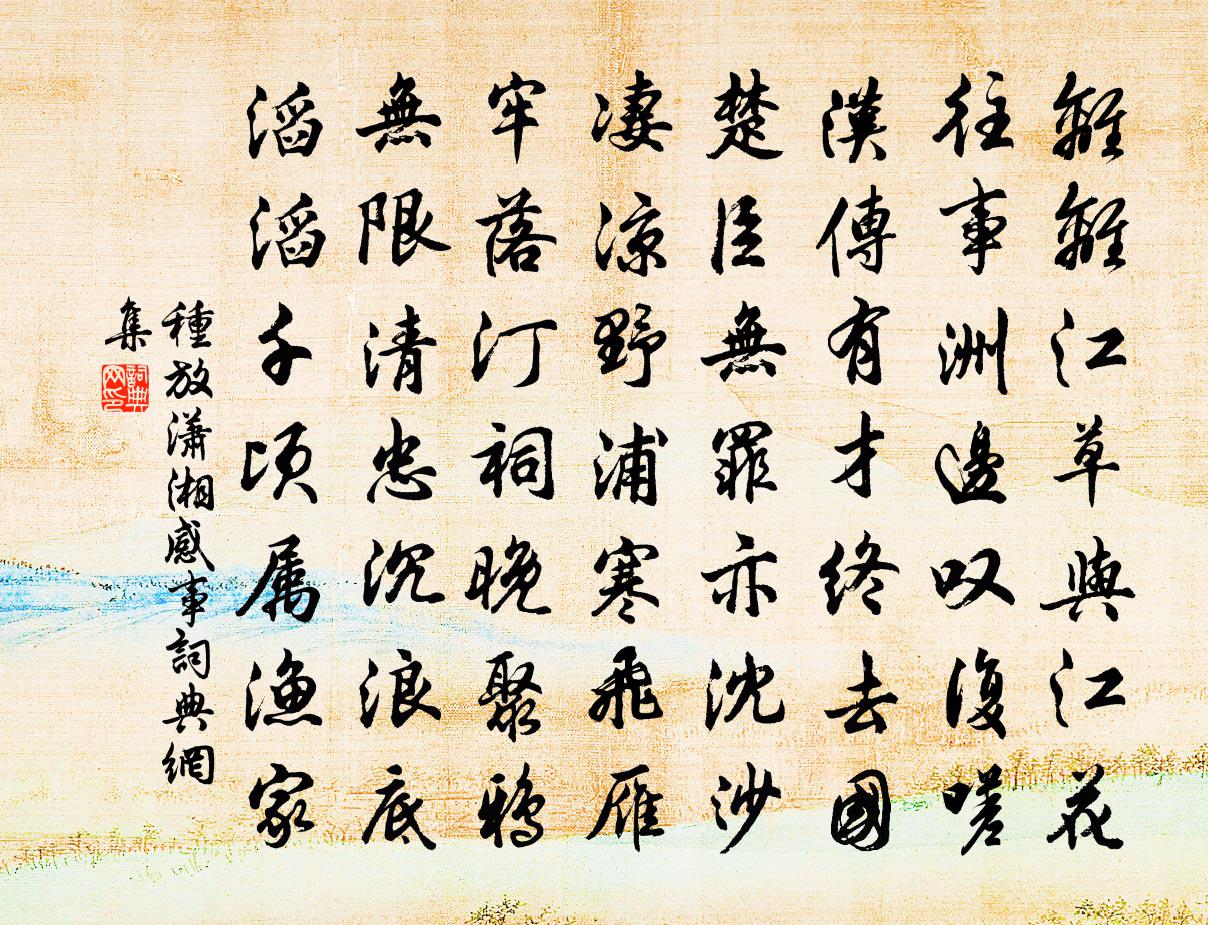 離離江草與江花
往事洲邊叹復嗟
漢傳有才終去國
楚臣無罪亦沈沙
凄涼野浦寒飛雁
牢落汀祠晚聚鴉
無限清忠沉浪底
滔滔千頃属漁家
種放瀟湘感事詞典網
集
詞典
网印